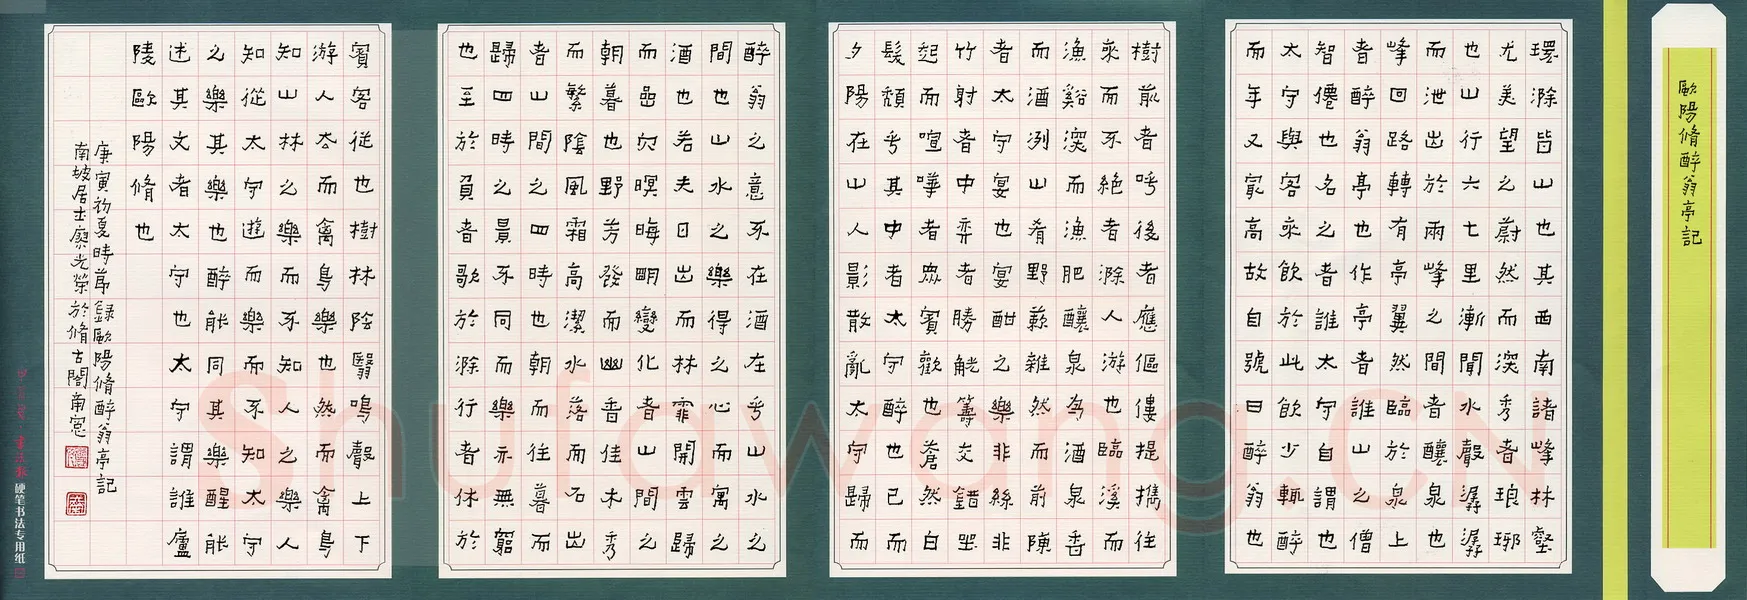 歐陽脩醉翁亭記
環滁皆山也其西南諸峰林壑
尤美望之蔚然而深秀者琅琊
也山行六七里漸聞水聲潺潺
而泄出於兩峰之間者釀泉也
峰回路轉有亭翼然臨於泉上
者醉翁亭也作亭者誰山之僧
智僊也名之者誰太守自謂也
太守與客來飲於此飲少輒醉
而年又最高故自號曰醉翁也
醉翁之意不在酒在乎山水之
間也山水之樂得之心而寓之
酒也若夫日出而林霏開雲歸
而嵒穴暝晦明變化者山間之
朝暮也野芳發而幽香佳木秀
而繁陰風霜高潔水落而石出
者山間之四時也朝而往暮而
歸四時之景不同而樂亦無窮
也至於負者歌於滁行者休於
樹前者呼後者應傴僂提攜往
來而不絕者滁人游也臨溪而
漁谿深而漁肥釀泉為酒泉香
而酒洌山肴野蔌雜然而前陳
者太守宴也宴酣之樂非絲非
竹射者中弈者勝觥籌交錯坐
起而喧嘩者眾賓歡也蒼然白
髮頹乎其中者太守醉也已而
夕陽在山人影散亂太守歸而
賓客從也樹林陰翳鳴聲上下
游人去而禽鳥樂也然而禽鳥
知山林之樂而不知人之樂人
知從太守遊而樂而不知太守
之樂其樂也醉能同其樂醒能
述其文者太守也太守謂誰廬
陵歐陽脩也
庚寅初夏時節錄歐陽脩醉翁亭記
南坡居士廖光榮於脩古閣南窗
硬笔书法专用纸
Shufawang.CN